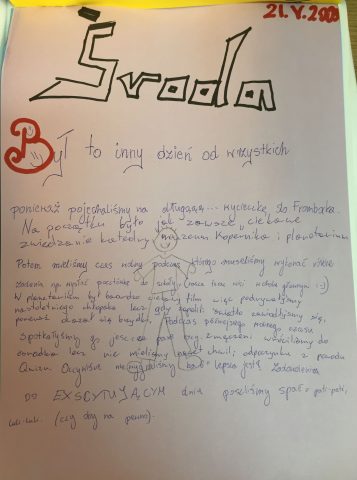 21.V.2003
Środa
Był to inny dzień od wszystkich
ponieważ pojechaliśmy na długaaa... wycieczkę do Fromborka.
Na początku było jak zawsze „ciekawe"
zwiedzanie katedry, muzeum Kopernika i planetarium
Potem mieliśmy czas wolny podczas którego musieliśmy wykonać
zadania np. wysłać pocztówkę do szkoły (nasza trasa wisi :-)
W planetarium był bardzo ciekawy film więc podrywałyśmy
nastoletniego chłopaka lecz gdy zapalili światło zawiodłyśmy się,
ponieważ okazał się brzydki. Podczas późniejszego wolnego czasu
spotkałyśmy go jeszcze parę razy. Zmęczeni wróciliśmy do
ośrodka lecz nie mieliśmy chwili odpoczynku z powodu
Quizu. Oczywiście nie wygraliśmy bo lepsza jest
Po EXSCYTUJĄCYM dniu poszliśmy spać pati-pati,
luli-luli. (czy aby na pewno).